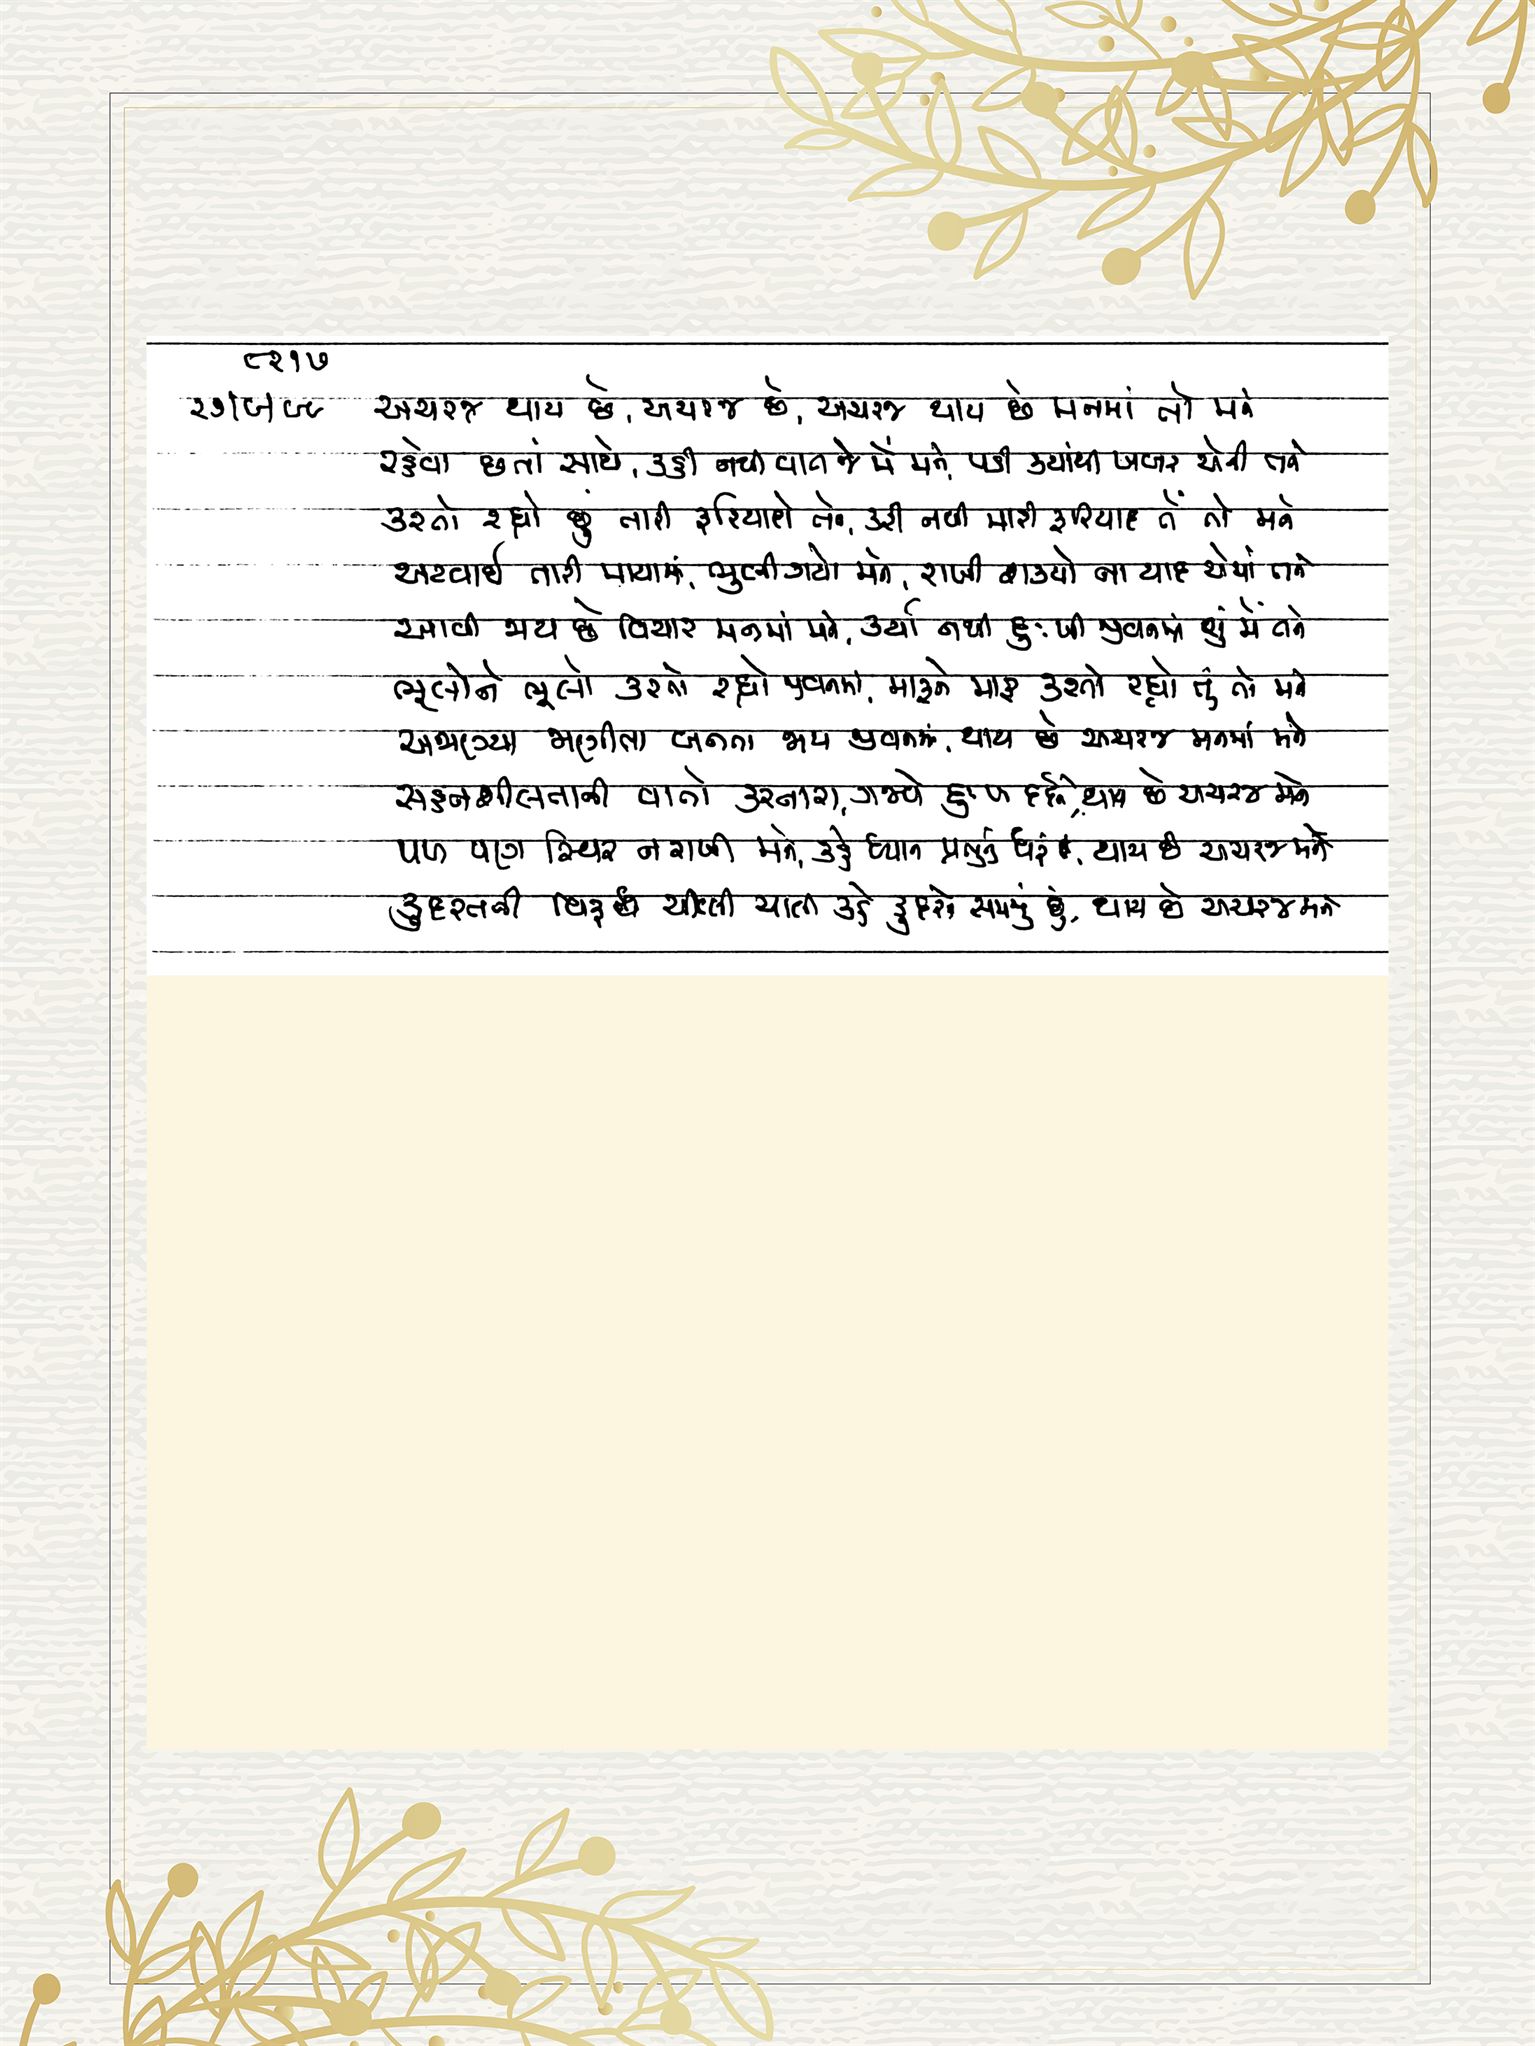 ૮૨૧૭
અચરજ થાય છે, અચરજ છે, અચરજ થાય છે મનમાં તો મને
રહેવા છતાં સાથે, કહી નથી વાતને મેં મને, પડી ક્યાંથી ખબર એની તને
કરતો રહ્યો છું તારી ફરિયાદો તને, કરી નથી મારી ફરિયાદ તેં તો મને
અટવાઈ તારી માયામાં, ભુલી ગયો મને, રાખી શક્યો ના યાદ એમાં તને
આવી જાય છે વિચાર મનમાં મને, કર્યા નથી દુઃખી જીવનમાં શું મેં તને
ભૂલોને ભૂલો કરતો રહ્યો જીવનમાં, માફને માફ કરતો રહ્યો તું તો મને
અજાણ્યા જાણીતા બનતા જાય જીવનમાં, થાય છે અચરજ મનમાં મને
સહનશીલતાની વાતો કરનારા, ગજવે દુઃખ દર્દને, થાય છે અચરજ મને
પળ પણ સ્થિર ન રાખી મને, કહે ધ્યાન પ્રભુનું ધરું છું, થાય છે અચરજ મને
કુદરતની વિરૂદ્ધ ચીલ્લી ચાલી કહે કુદરતે સમજું છું, થાય છે અચરજ મને